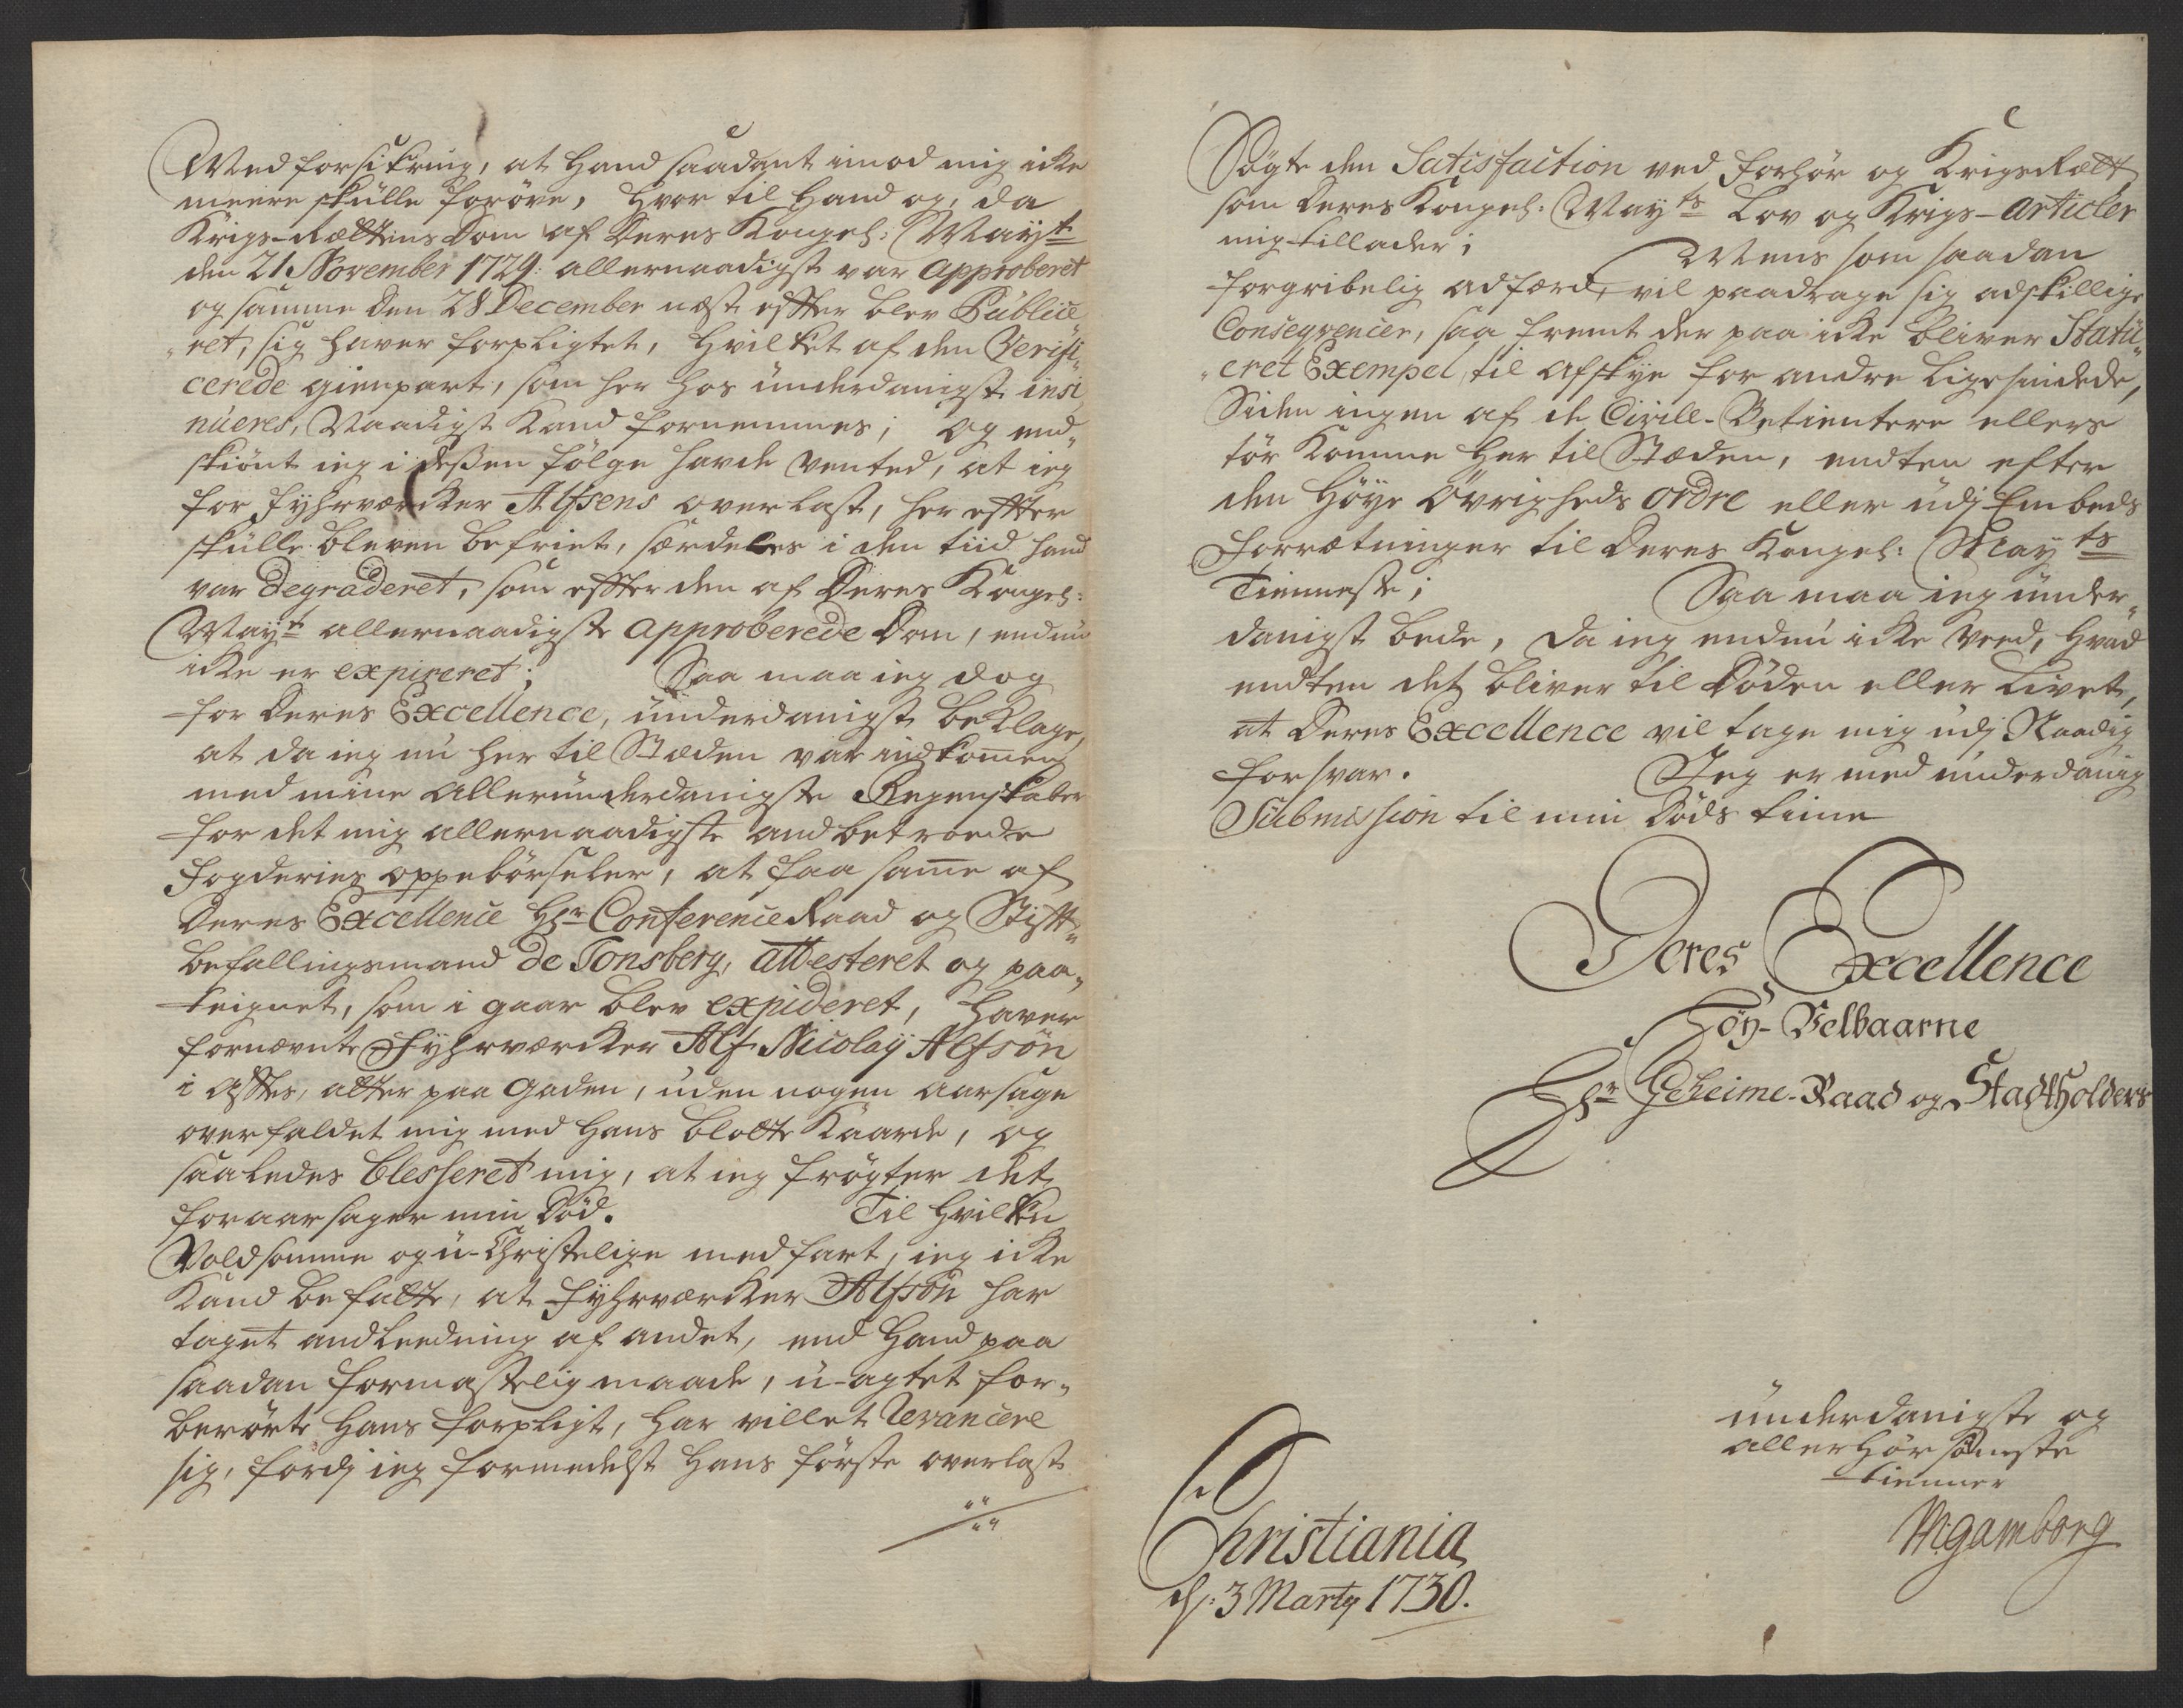 Med forsikring, at hand saadant imod mig icke
meere skulle forøve, hvor til hand og, da
Krigs-Rættens Dom af Deres Kongel: Mayt
den 21 November 1729: allernaadigst var approberet
og samme den 28 December næst effter blev Publice
"ret, sig haver forpligtet, hvilket af den Verifi„
cerede gienpart, som her hos underdanigst insi
nueres, Naadigst kand fornemmes; Og end„
skiønt ieg i deßen følge havde Vented, at ieg
for Fyhrværcker Alfsens overlast, her effter
skulle bleven befriet, særdeles i den tiid hand
var degraderet, som effter den af Deres Kongel:
Mayts allernaadigste approberede Dom, endnu
icke er expireret; Saa maa ieg dog
for Deres Excellence, underdanigst beklage,
at da ieg nu her til Stæden var indkom̄en
med mine allerunderdanigste Regenskaber
for det mig allernaadigste andbetroede
Fogderies oppebørseler, at faa sam̄e af
Deres Excellence Hr Conference Raad og Stifft„
befallingsmand de Tonsberg, attesteret og paa„
teignet, som i gaar blev expideret, haver
fornævnte Fyhrværcker Alf Nicolaÿ Alfsøn
i Afftes, atter paa gaden, uden nogen aarsage
overfaldet mig med hans blotte Kaarde, og
saaledes blesseret mig, at ieg frøgter det
foraarsager min Død. Til hvilken
Voldsomme og u-Christelige medfart, ieg icke
kand befatte, at Fyhrværcker Alfsøn har
taget andleedning af andet, end hand paa
saadan formastelig maade, u-agtet for„
berørte hans forpligt, har villet Revancere
sig, fordj ieg formedelst hans første overlast
Søgte den Satisfaction ved forhør og Krigs Rætt
som Deres Kongel: Mayts Lov og Krigs-articler
mig tillader; Mens som saadan
forgribelig adfærd, vil paadrage sig adskillige
Conseqvencier, saa fremt der paa icke bliver Statu„
"eret Exempel, til afskye for andre ligesindede,
Siden ingen af de Civill-Betientere ellers
tør komme her til Stæden, endten efter
den Høye Øvrigheds ordre eller udj Embeds
Forrætninger til Deres Kongel: Mayts
Tienneste; Saa maa ieg under„
danigst bede, da ieg endnu icke veed, hvad
endten det bliver til Døden eller Livet,
at Deres Excellence vil tage mig udj Naadig
forsvar. Jeg er med underdanig
Submission til min Døds time
Deres Excellence
Høy-Velbaarne
Hr Geheime-Raad og Stadtholders
underdanigste og
allerhørsomste
tienner
Mgamborg
Christiania
d: 3 Marty 1730.